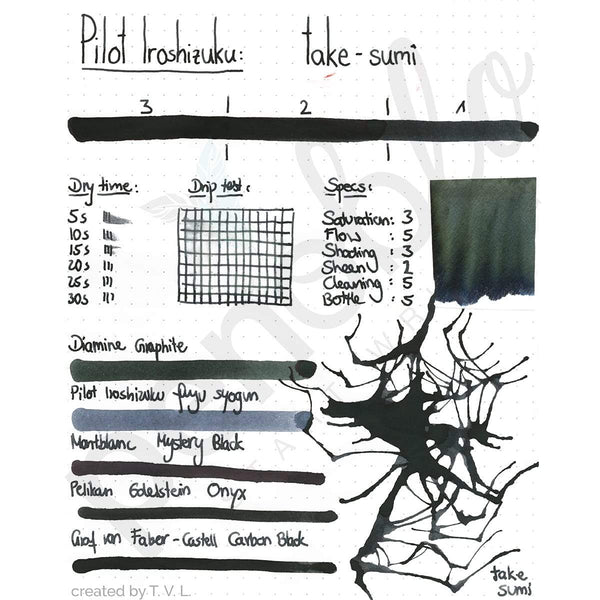 Pilot Iroshizuku: take-sumi
3 | 2 | 1
Dry time:
5s
10s
15s
20s
25s
30s
Drip test:
Specs:
Saturation: 3
Flow : 5
Shading : 3
Sheen : 2
Cleaning : 5
Bottle : 5
Diamine Graphite
Pilot Iroshizuku fuyu syogun
Montblanc Mystery Black
Pelikan Edelstein Onyx
Graf von Faber-Castell Carbon Black
take
sumi
created by T. V. L.